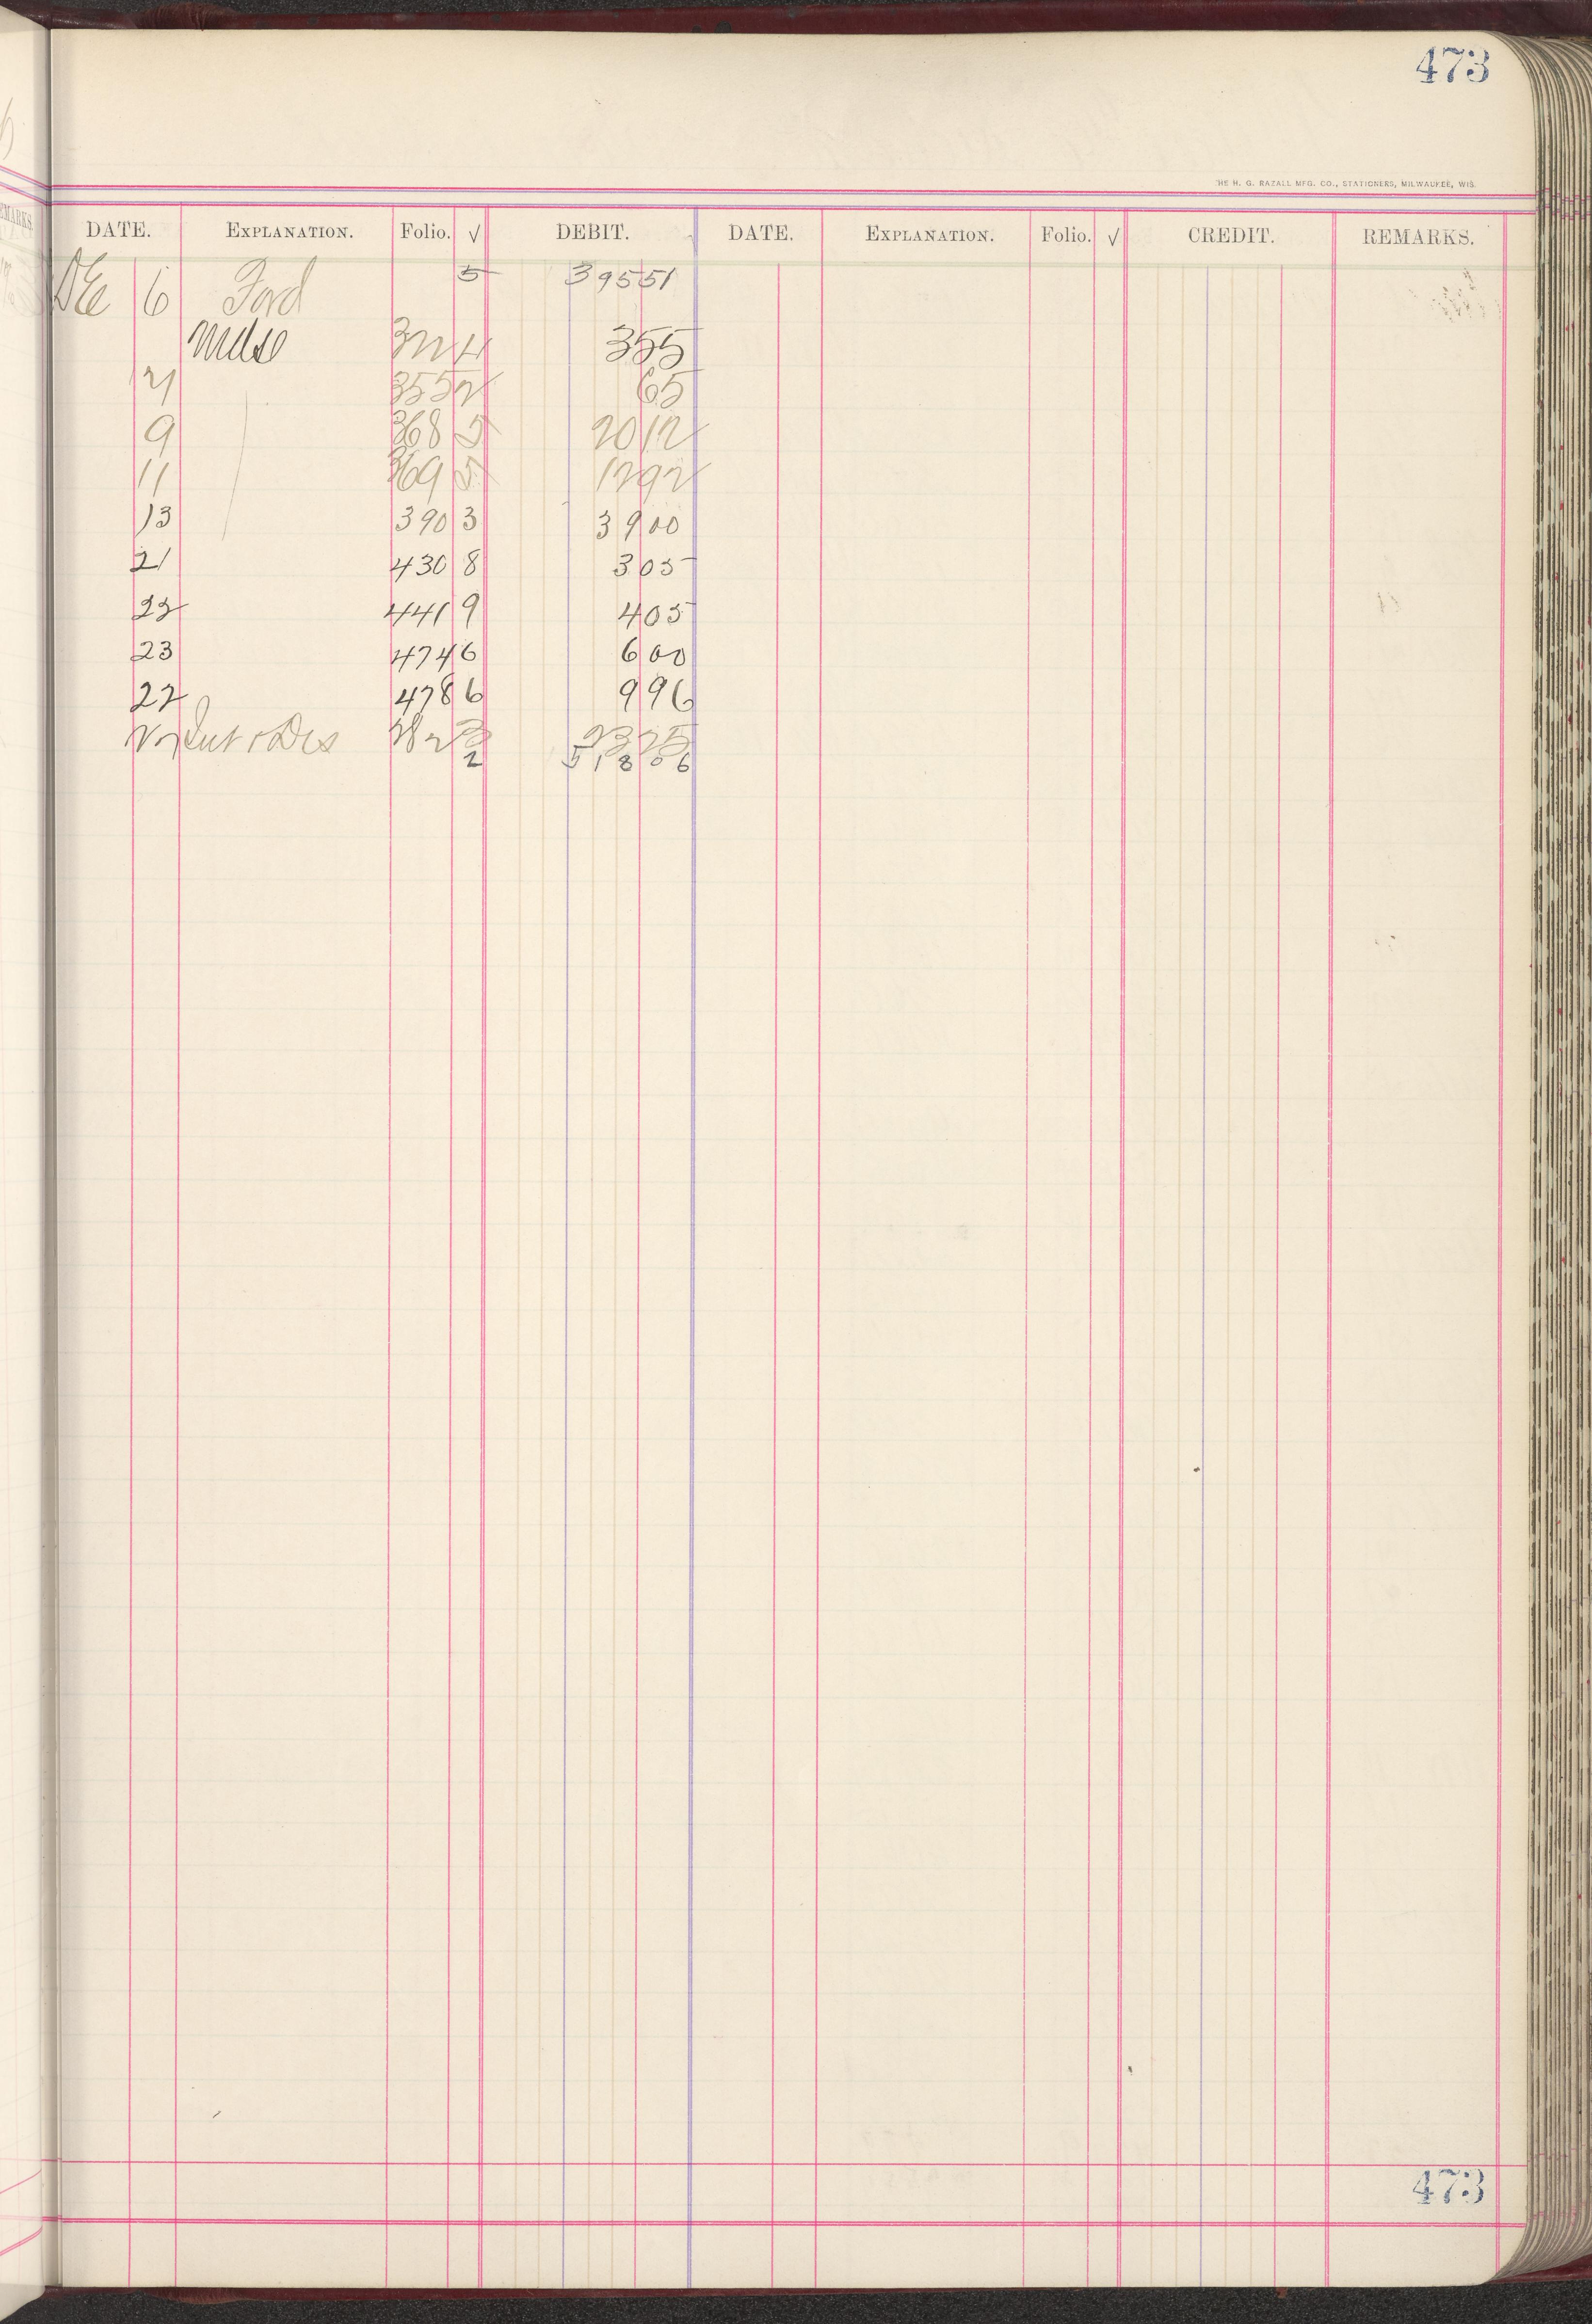 473
THE H. G. RAZALL MFG. CO., STATIONERS, MILWAUKEE, WIS.
DATE. EXPLANATION. Folio. √ DEBIT. DATE. EXPLANATION. Folio. √ CREDIT. REMARKS.
Dec 6 Ford 5 395 51
Mdse 4 3 55
355 2 65
9 368 5 20 12
11 369 5 12 92
13 390 3 39 00
21 430 8 3 05
22 441 9 4 05
23 474 6 6 00
27 478 6 9 96
Int & Dis 23 25
2 518 06
473